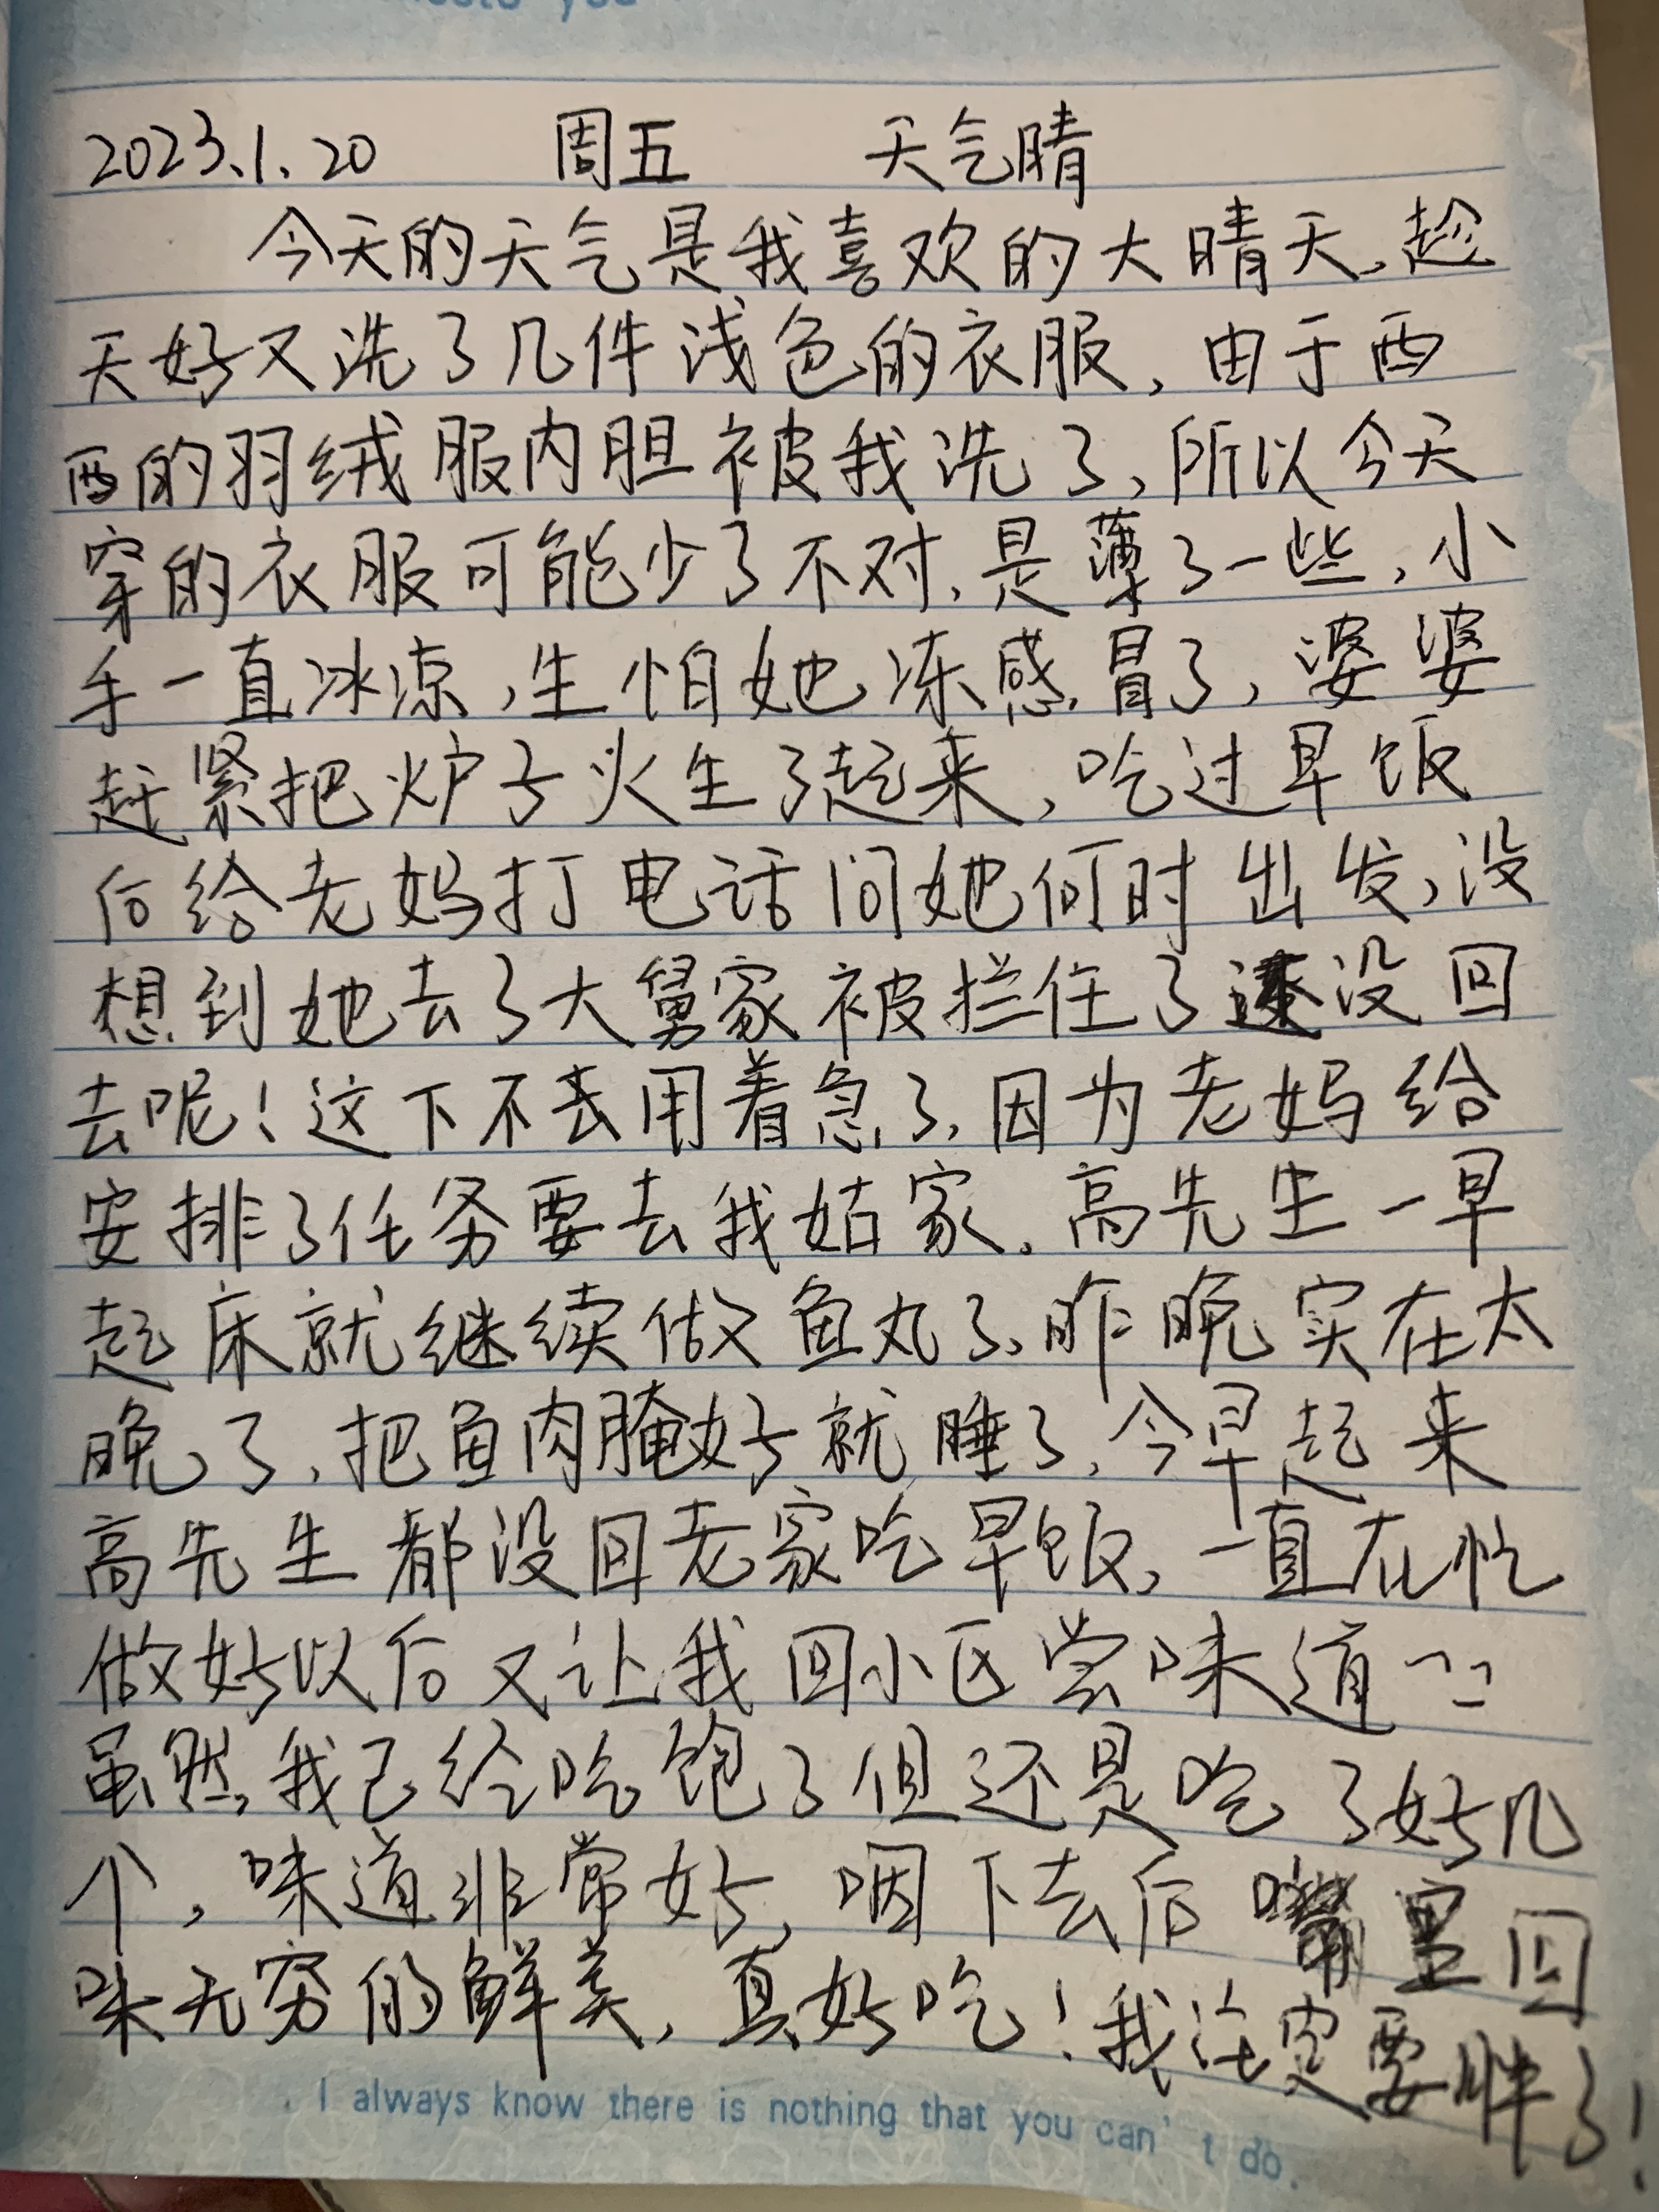 2023.1.20 周五 天气晴
今天的天气是我喜欢的大晴天,趁
天好又洗了几件浅色的衣服,由于西
西的羽绒服内胆被我洗了,所以今天
穿的衣服可能少了不对,是薄了一些,小
手一直冰凉,生怕她冻感冒了,婆婆
赶紧把炉子火生了起来,吃过早饭
后给老妈打电话问她何时出发,没
想到她去了大舅家被拦住了没回
去呢!这下不去用着急了,因为老妈给
安排了任务要去我姑家。高先生一早
起床就继续做鱼丸了,昨晚实在太
晚了,把鱼肉腌好就睡了,今早起来
高先生都没回老家吃早饭,一直在忙
做好以后又让我回小区尝味道
虽然我已经吃饱了但还是吃了好几
个,味道非常好,咽下去后嘴里回
味无穷的鲜美,真好吃!我注定要胖了!
I always know there is nothing that you can't do.